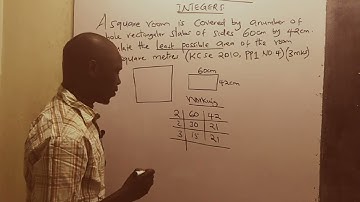 INTEGERS
A square room is covered by a number of
whole rectangular slabs of sides 60cm by 42cm.
Calculate the least possible area of the room
square metres (KCSE 2010, PP1 NO.4)(3mks)
60cm
42cm
Working
2 60 42
2 30 21
3 15 21